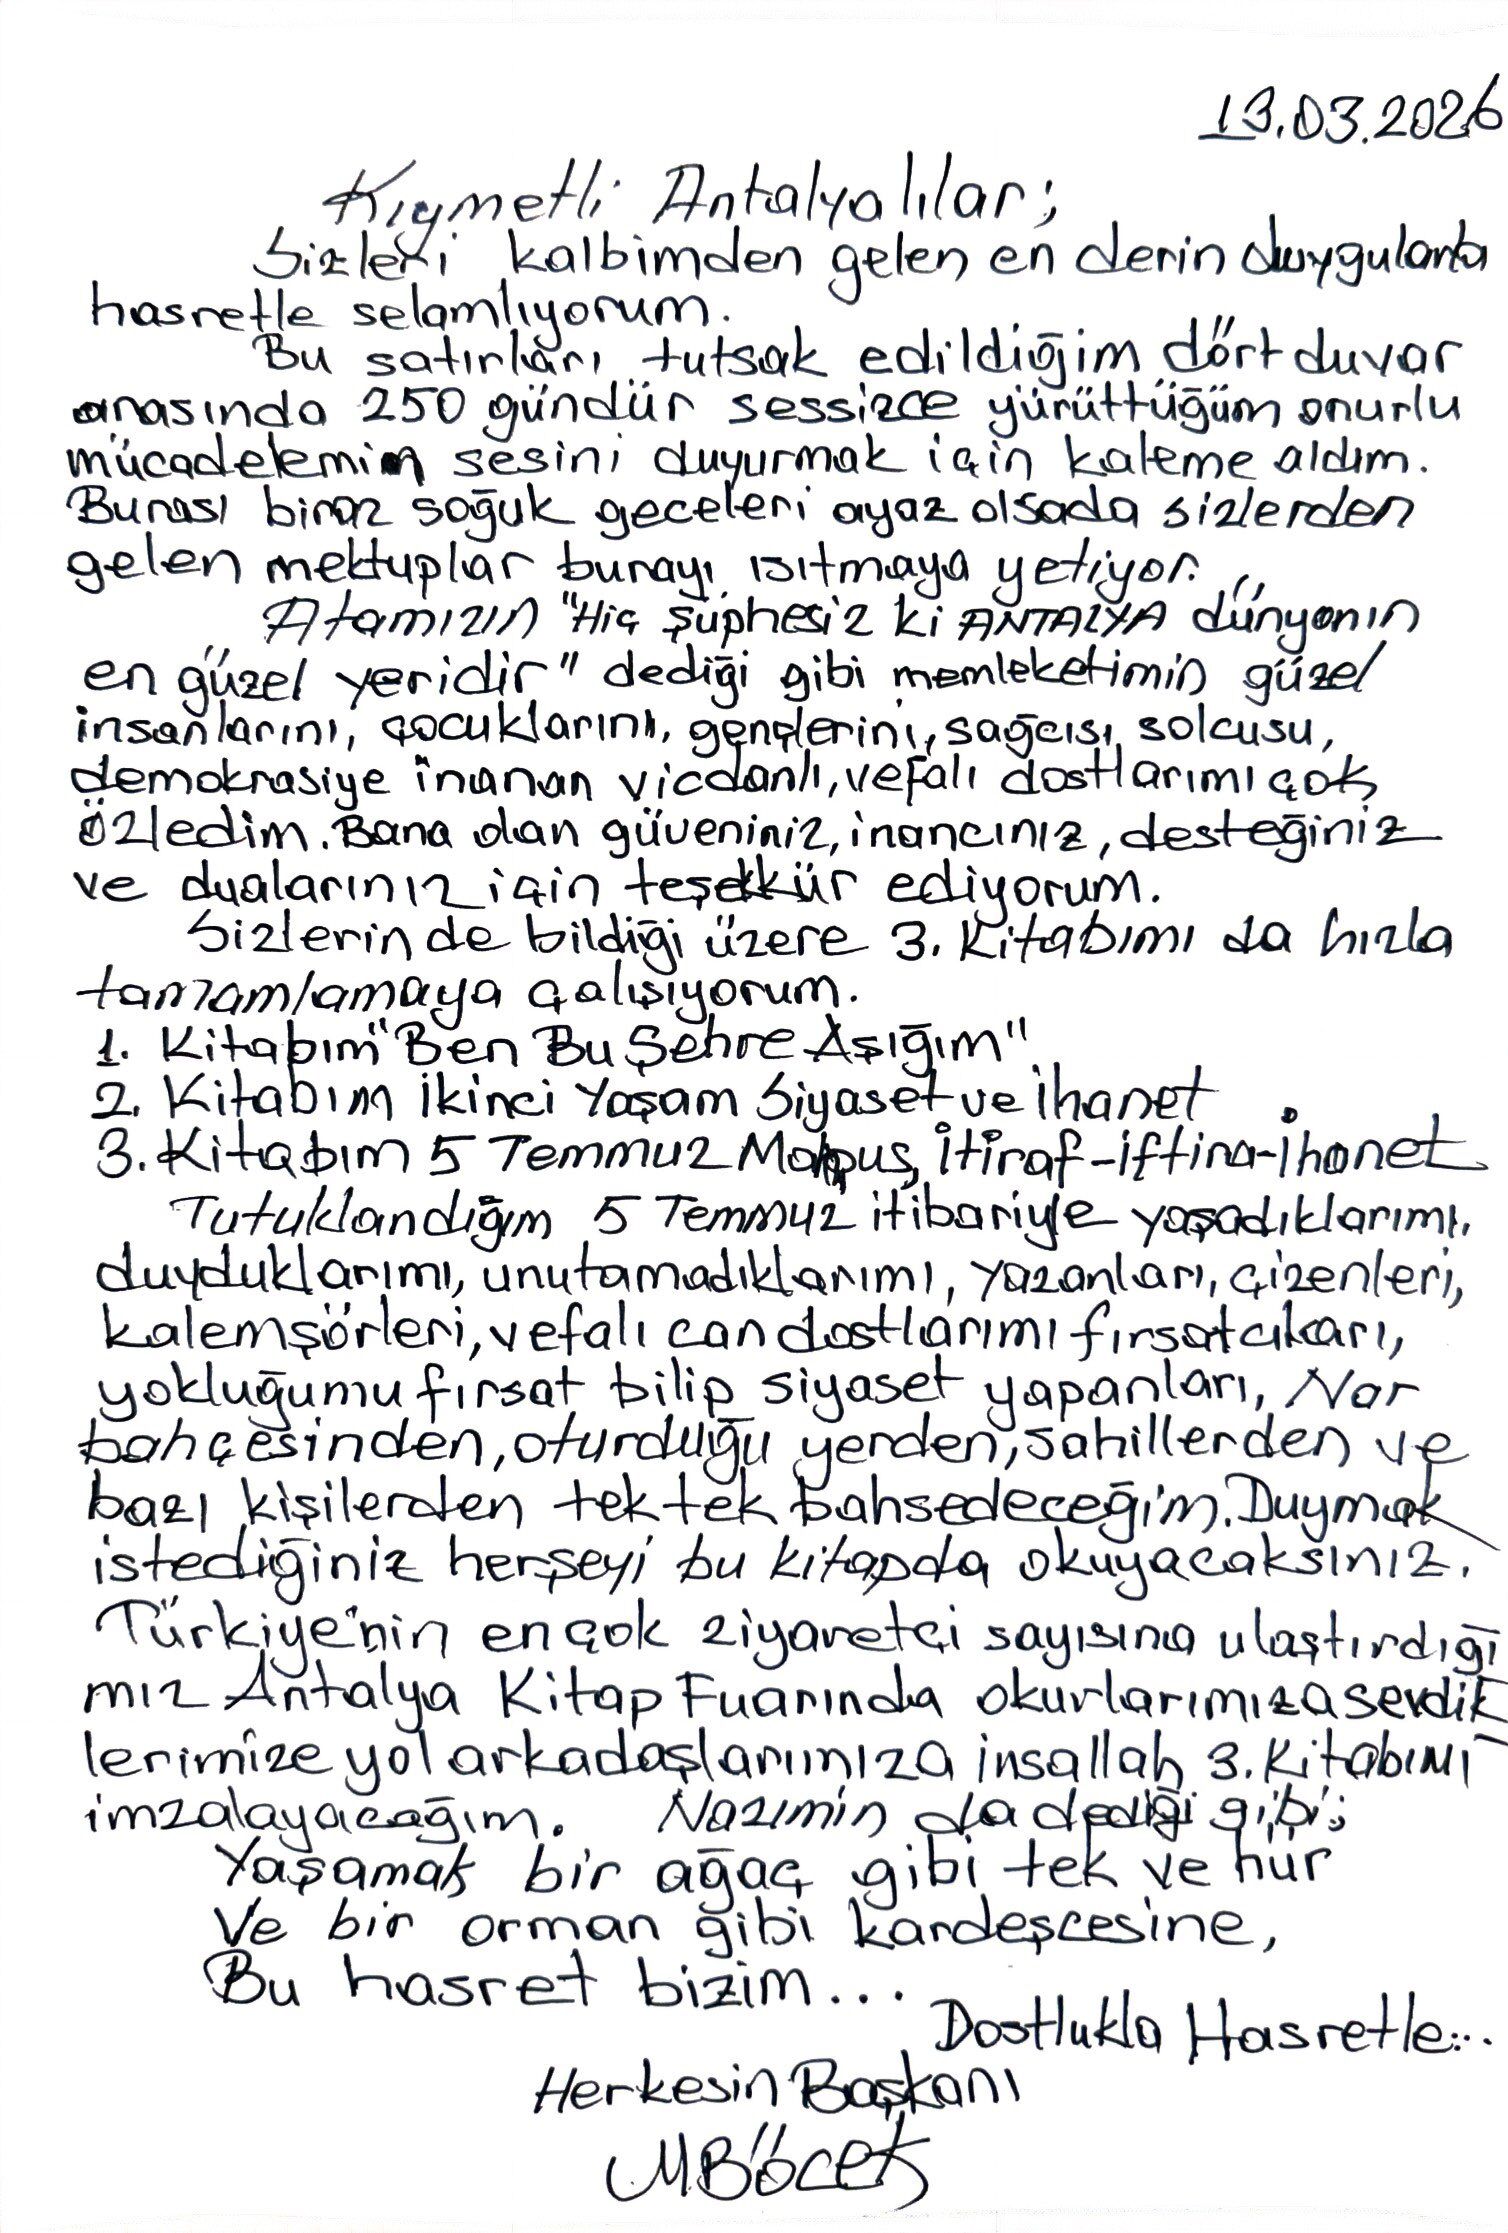 13.03.2026
Kıymetli Antalyalılar;
Sizleri kalbimden gelen en derin duygularla
hasretle selamlıyorum.
Bu satırları tutsak edildiğim dört duvar
arasında 250 gündür sessizce yürüttüğüm onurlu
mücadelemin sesini duyurmak için kaleme aldım.
Burası biraz soğuk geceleri ayaz olsada sizlerden
gelen mektuplar burayı ısıtmaya yetiyor.
Atamızın "Hiç şüphesiz ki ANTALYA dünyanın
en güzel yeridir" dediği gibi memleketimin güzel
insanlarını, çocuklarını, gençlerini, sağcısı, solcusu,
demokrasiye inanan vicdanlı, vefalı dostlarımı çok
özledim. Bana olan güveniniz, inancınız, desteğiniz
ve dualarınız için teşekkür ediyorum.
Sizlerin de bildiği üzere 3. Kitabımı da hızla
tamamlamaya çalışıyorum.
1. Kitabım "Ben Bu Şehre Aşığım"
2. Kitabım İkinci Yaşam Siyaset ve İhanet
3. Kitabım 5 Temmuz Mahpus, İtiraf-İftira-İhanet
Tutuklandığım 5 Temmuz itibariyle yaşadıklarımı,
duyduklarımı, unutamadıklarımı, yazanları, çizenleri,
kalemşörleri, vefalı can dostlarımı fırsatcıları,
yokluğumu fırsat bilip siyaset yapanları, Nar
bahçesinden, oturduğu yerden, sahillerden ve
bazı kişilerden tek tek bahsedeceğim. Duymak
istediğiniz herşeyi bu kitapda okuyacaksınız.
Türkiye'nin en çok ziyaretçi sayısına ulaştırdığı
mız Antalya Kitap Fuarında okurlarımıza sevdik
lerimize yol arkadaşlarımıza insallah 3. Kitabımı
imzalayacağım. Nazımın da dediği gibi;
Yaşamak bir ağaç gibi tek ve hür
Ve bir orman gibi kardeşcesine,
Bu hasret bizim...
Dostlukla Hasretle...
Herkesin Başkanı
MBöcek